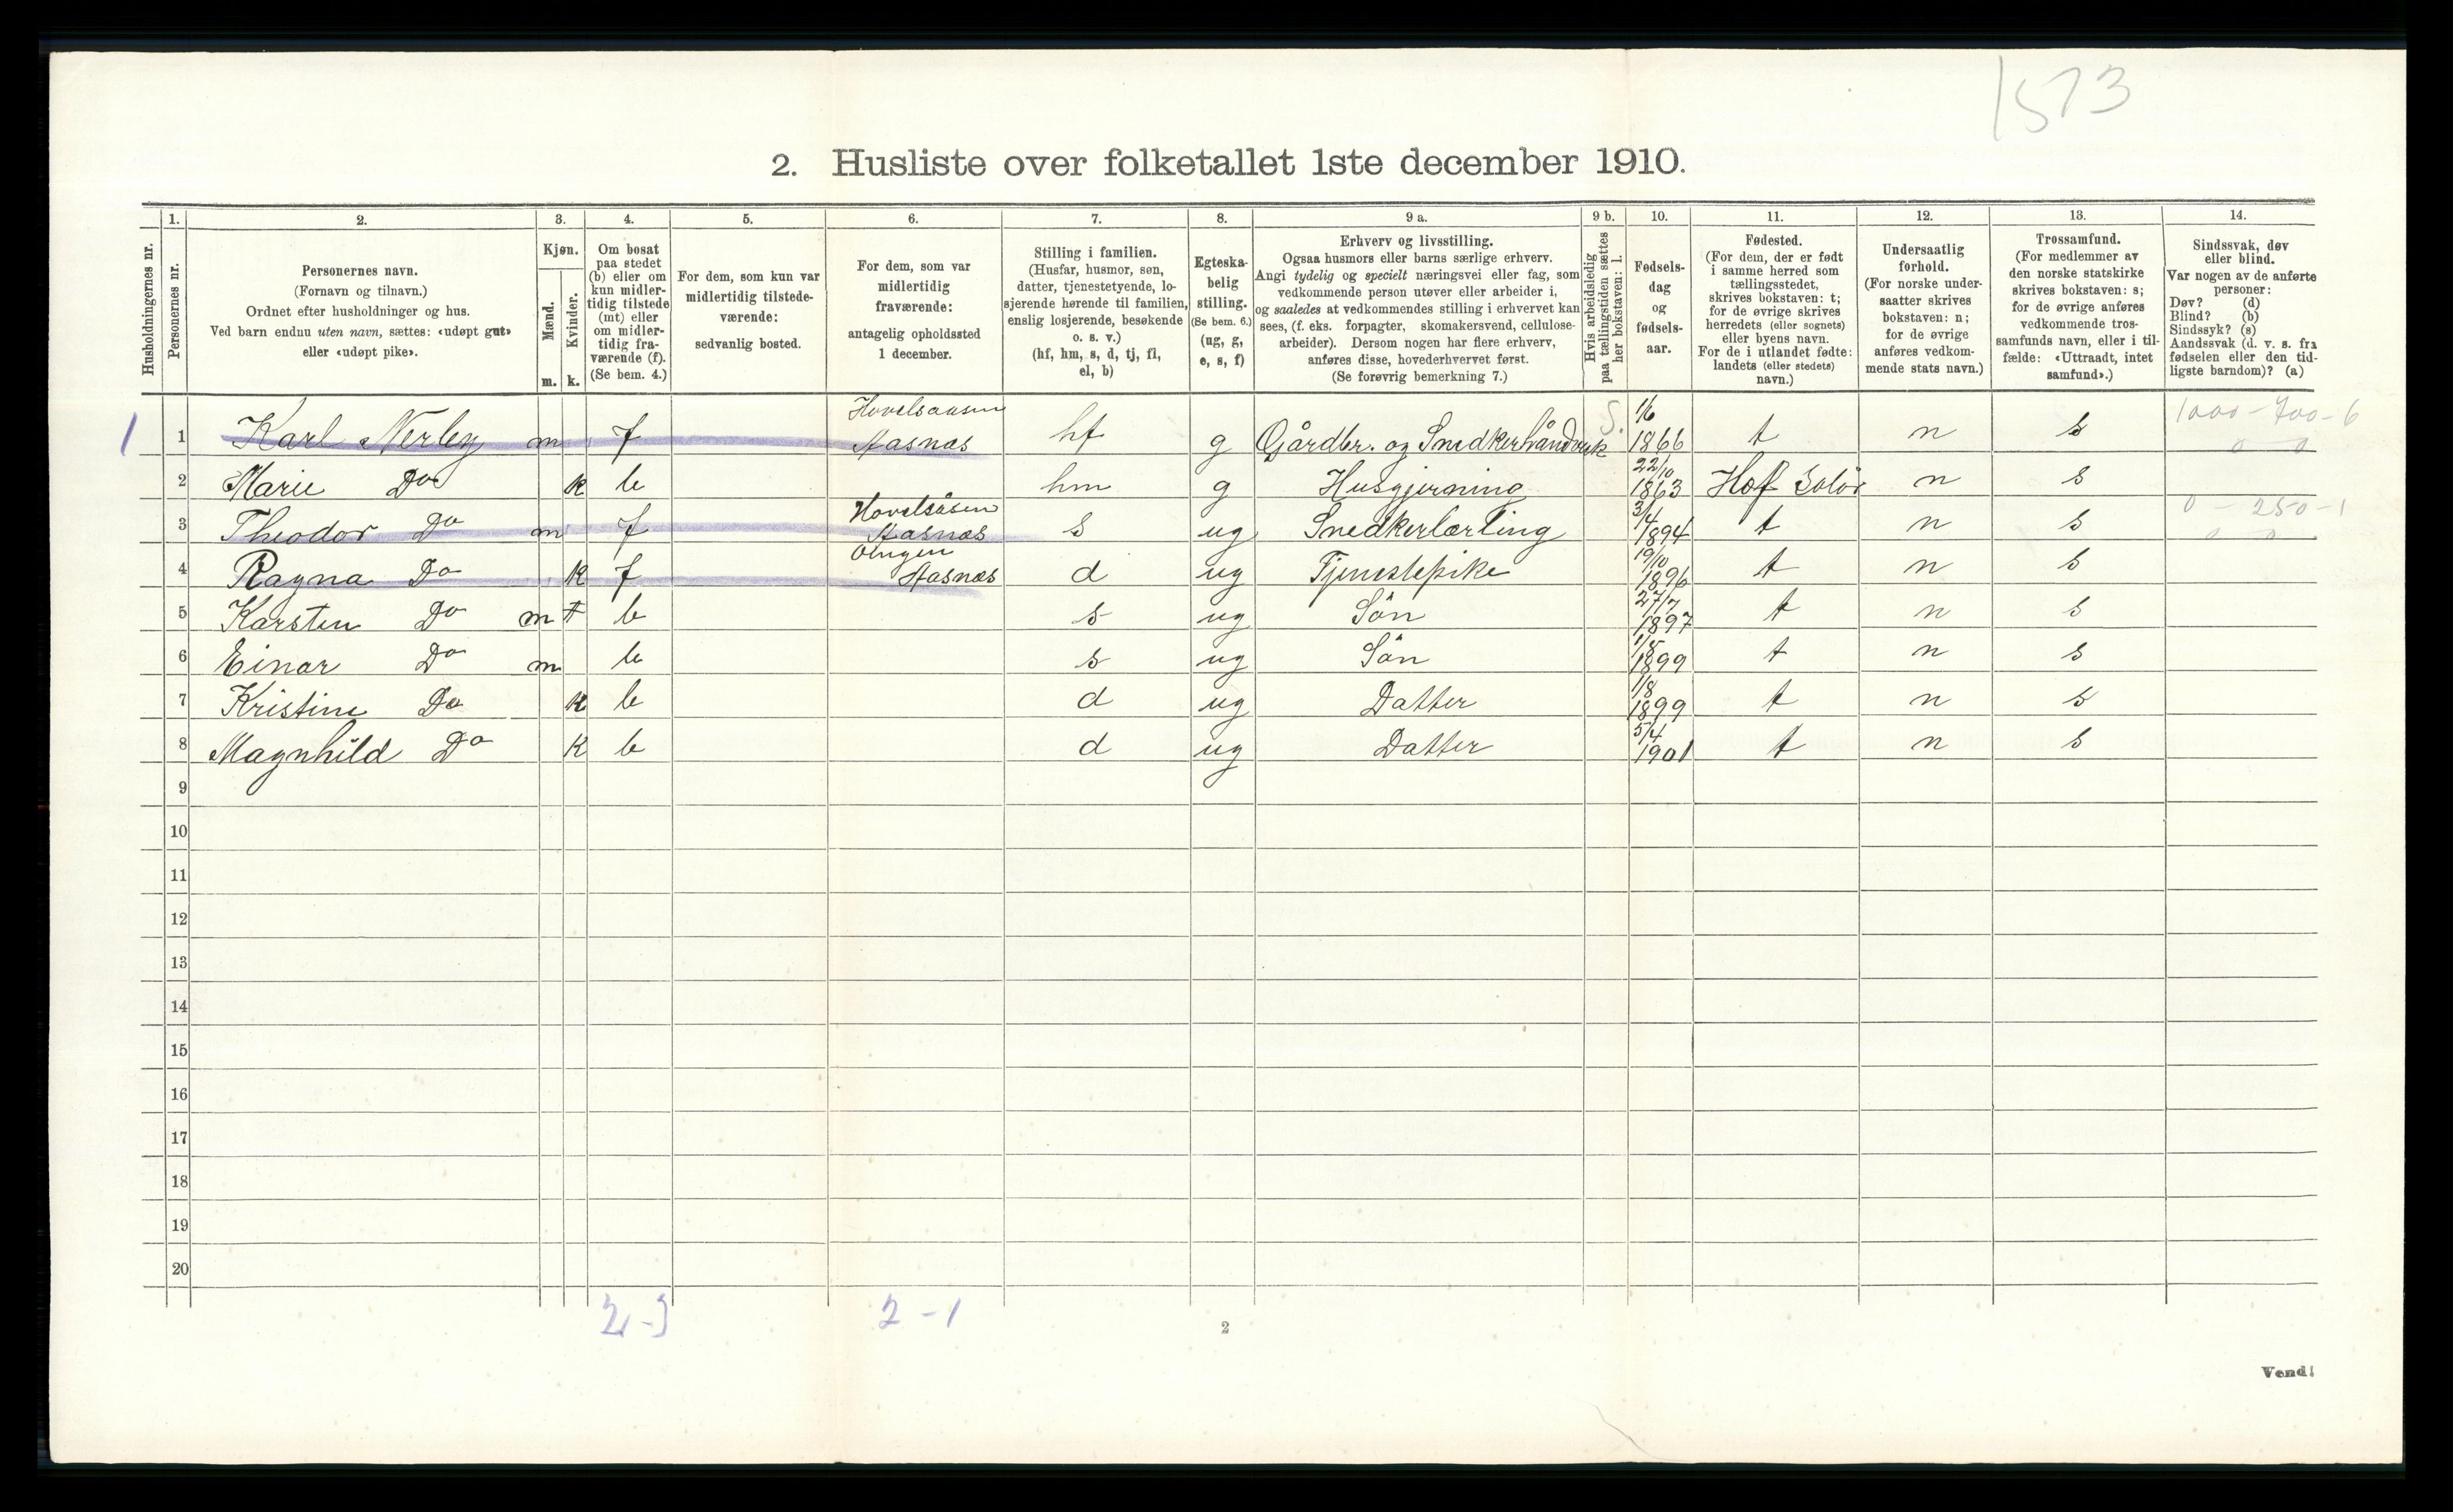 1573
2. Husliste over folketallet 1ste december 1910.
Husholdningernes nr.
1. 2. 3. 4. 5. 6. 7. 8. 9 a. 9 b. 10. 11. 12. 13. 14.
Personernes nr.
Personernes navn.
(Fornavn og tilnavn.)
Ordnet efter husholdninger og hus.
Ved barn endnu uten navn, sættes: «udøpt gut»
eller «udøpt pike».
Kjøn.
Mænd.
Kvinder.
m. k.
Om bosat
paa stedet
(b) eller om
kun midler-
tidig tilstede
(mt) eller
om midler-
tidig fra-
værende (f).
(Se bem. 4.)
For dem, som kun var
midlertidig tilstede-
værende:
sedvanlig bosted.
For dem, som var
midlertidig
fraværende:
antagelig opholdssted
1 december.
Stilling i familien.
(Husfar, husmor, søn,
datter, tjenestetyende, lo-
sjerende hørende til familien,
enslig losjerende, besøkende
o. s. v.)
(hf, hm, s, d, tj, fl,
el, b)
Egteska-
belig
stilling.
(Se bem. 6.)
(ug, g,
e, s, f)
Erhverv og livsstilling.
Ogsaa husmors eller barns særlige erhverv.
Angi tydelig og specielt næringsvei eller fag, som
vedkommende person utøver eller arbeider i,
og saaledes at vedkommendes stilling i erhvervet kan
sees, (f. eks. forpagter, skomakersvend, cellulose-
arbeider). Dersom nogen har flere erhverv,
anføres disse, hovederhvervet først.
(Se forøvrig bemerkning 7.)
Hvis arbeidsledig
paa tællingstiden sættes
her bokstaven: l.
Fødsels-
dag
og
fødsels-
aar.
Fødested.
(For dem, der er født
i samme herred som
tællingsstedet,
skrives bokstaven: t;
for de øvrige skrives
herredets (eller sognets)
eller byens navn.
For de i utlandet fødte:
landets (eller stedets)
navn.)
Undersaatlig
forhold.
(For norske under-
saatter skrives
bokstaven: n;
for de øvrige
anføres vedkom-
mende stats navn.)
Trossamfund.
(For medlemmer av
den norske statskirke
skrives bokstaven: s;
for de øvrige anføres
vedkommende tros-
samfunds navn, eller i til-
fælde: «Uttraadt, intet
samfund».)
Sindssvak, døv
eller blind.
Var nogen av de anførte
personer:
Døv? (d)
Blind? (b)
Sindssyk? (s)
Aandssvak (d. v. s. fra
fødselen eller den tid-
ligste barndom)? (a)
Hovelsaasen S. 1/6 1000 - 700 - 6
1 1 Karl Nerley m f Aasnæs hf g Gårdbr. og Snedkerhåndverk 1866 t n s 0 0
22/10
2 Marie Do k b hm g Husgjerning 1863 Hof Solør n s
Hovelsåsen 3/4 0 - 250 - 1
3 Theodor Do m f Aasnæs s ug Snedkerlærling 1894 t n s 0 0
19/10
4 Ragna Do k f Aasnæs d ug Tjenestepike 1896 t n s
27/7
5 Karsten Do m b s ug Sön 1897 t n s
1/5
6 Einar Do m b s ug Sön 1899 t n s
1/8
7 Kristine Do k b d ug Datter 1899 t n s
5/4
8 Magnhild Do k b d ug Datter 1901 t n s
9
10
11
12
13
14
15
16
17
18
19
20
2-3 2-1
2
Vend!